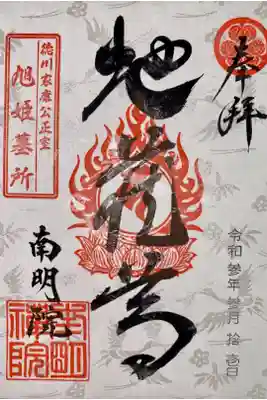 奉拝
令和參年
地蔵尊
徳川家康公正室
旭姫墓所
南明院
南明
禅院